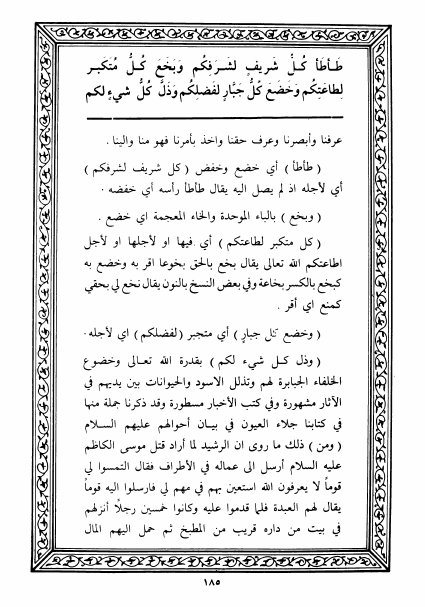 طَأطَأ كُـلُّ شَريفٍ لشَـرَفِكُم وَبَخَعَ كُـلُّ مُتَكَبـر
لِطاعَتِكُم وَخَضَعَ كُلُّ جَبَّارٍ لفَضلِكُم وَذَلَّ كُلُّ شيءٍ لكم
عرفنا وأبصرنا وعرف حقنا واخذ بأمرنا فهو منا والينا .
( طأطأ ) أي خضع وخفض ( كل شريف لشرفكم )
أي لأجله اذ لم يصل اليه يقال طأطأ رأسه أي خفضه .
( وبخع ) بالباء الموحدة والخاء المعجمة اي خضع .
( كل متكبر لطاعتكم ) أي فيها او لأجلها او لأجل
اطاعتكم الله تعالى يقال بخع بالحق بخوعا اقر به وخضع به
كبخع بالكسر بخاعة وفي بعض النسخ بالنون يقال نخع لي بحقي
كمنع اي أقر .
( وخضع كل جبار ) أي متجبر ( لفضلكم ) اي لأجله .
( وذل كـل شيء لكم ) بقدرة الله تعـالى وخضوع
الخلفاء الجبابرة لهم وتذلل الاسود والحيوانات بين يديهم في
الآثار مشهورة وفي كتب الأخبار مسطورة وقد ذكرنا جملة منها
في كتابنا جلاء العيون في بيـان أحوالهم عليهم السـلام
( ومن ) ذلك ما روى ان الرشيد لما أراد قتل موسى الكاظم
عليه السلام أرسل الى عماله في الأطراف فقال التمسوا لي
قوماً لا يعرفون الله استعين بهم في مهم لي فارسلوا اليه قوماً
يقال لهم العبدة فلما قدموا عليه وكانوا خمسين رجلاً أنزلهم
في بيت من داره قريب من المطبخ ثم حمل اليهم المال
١٨٥